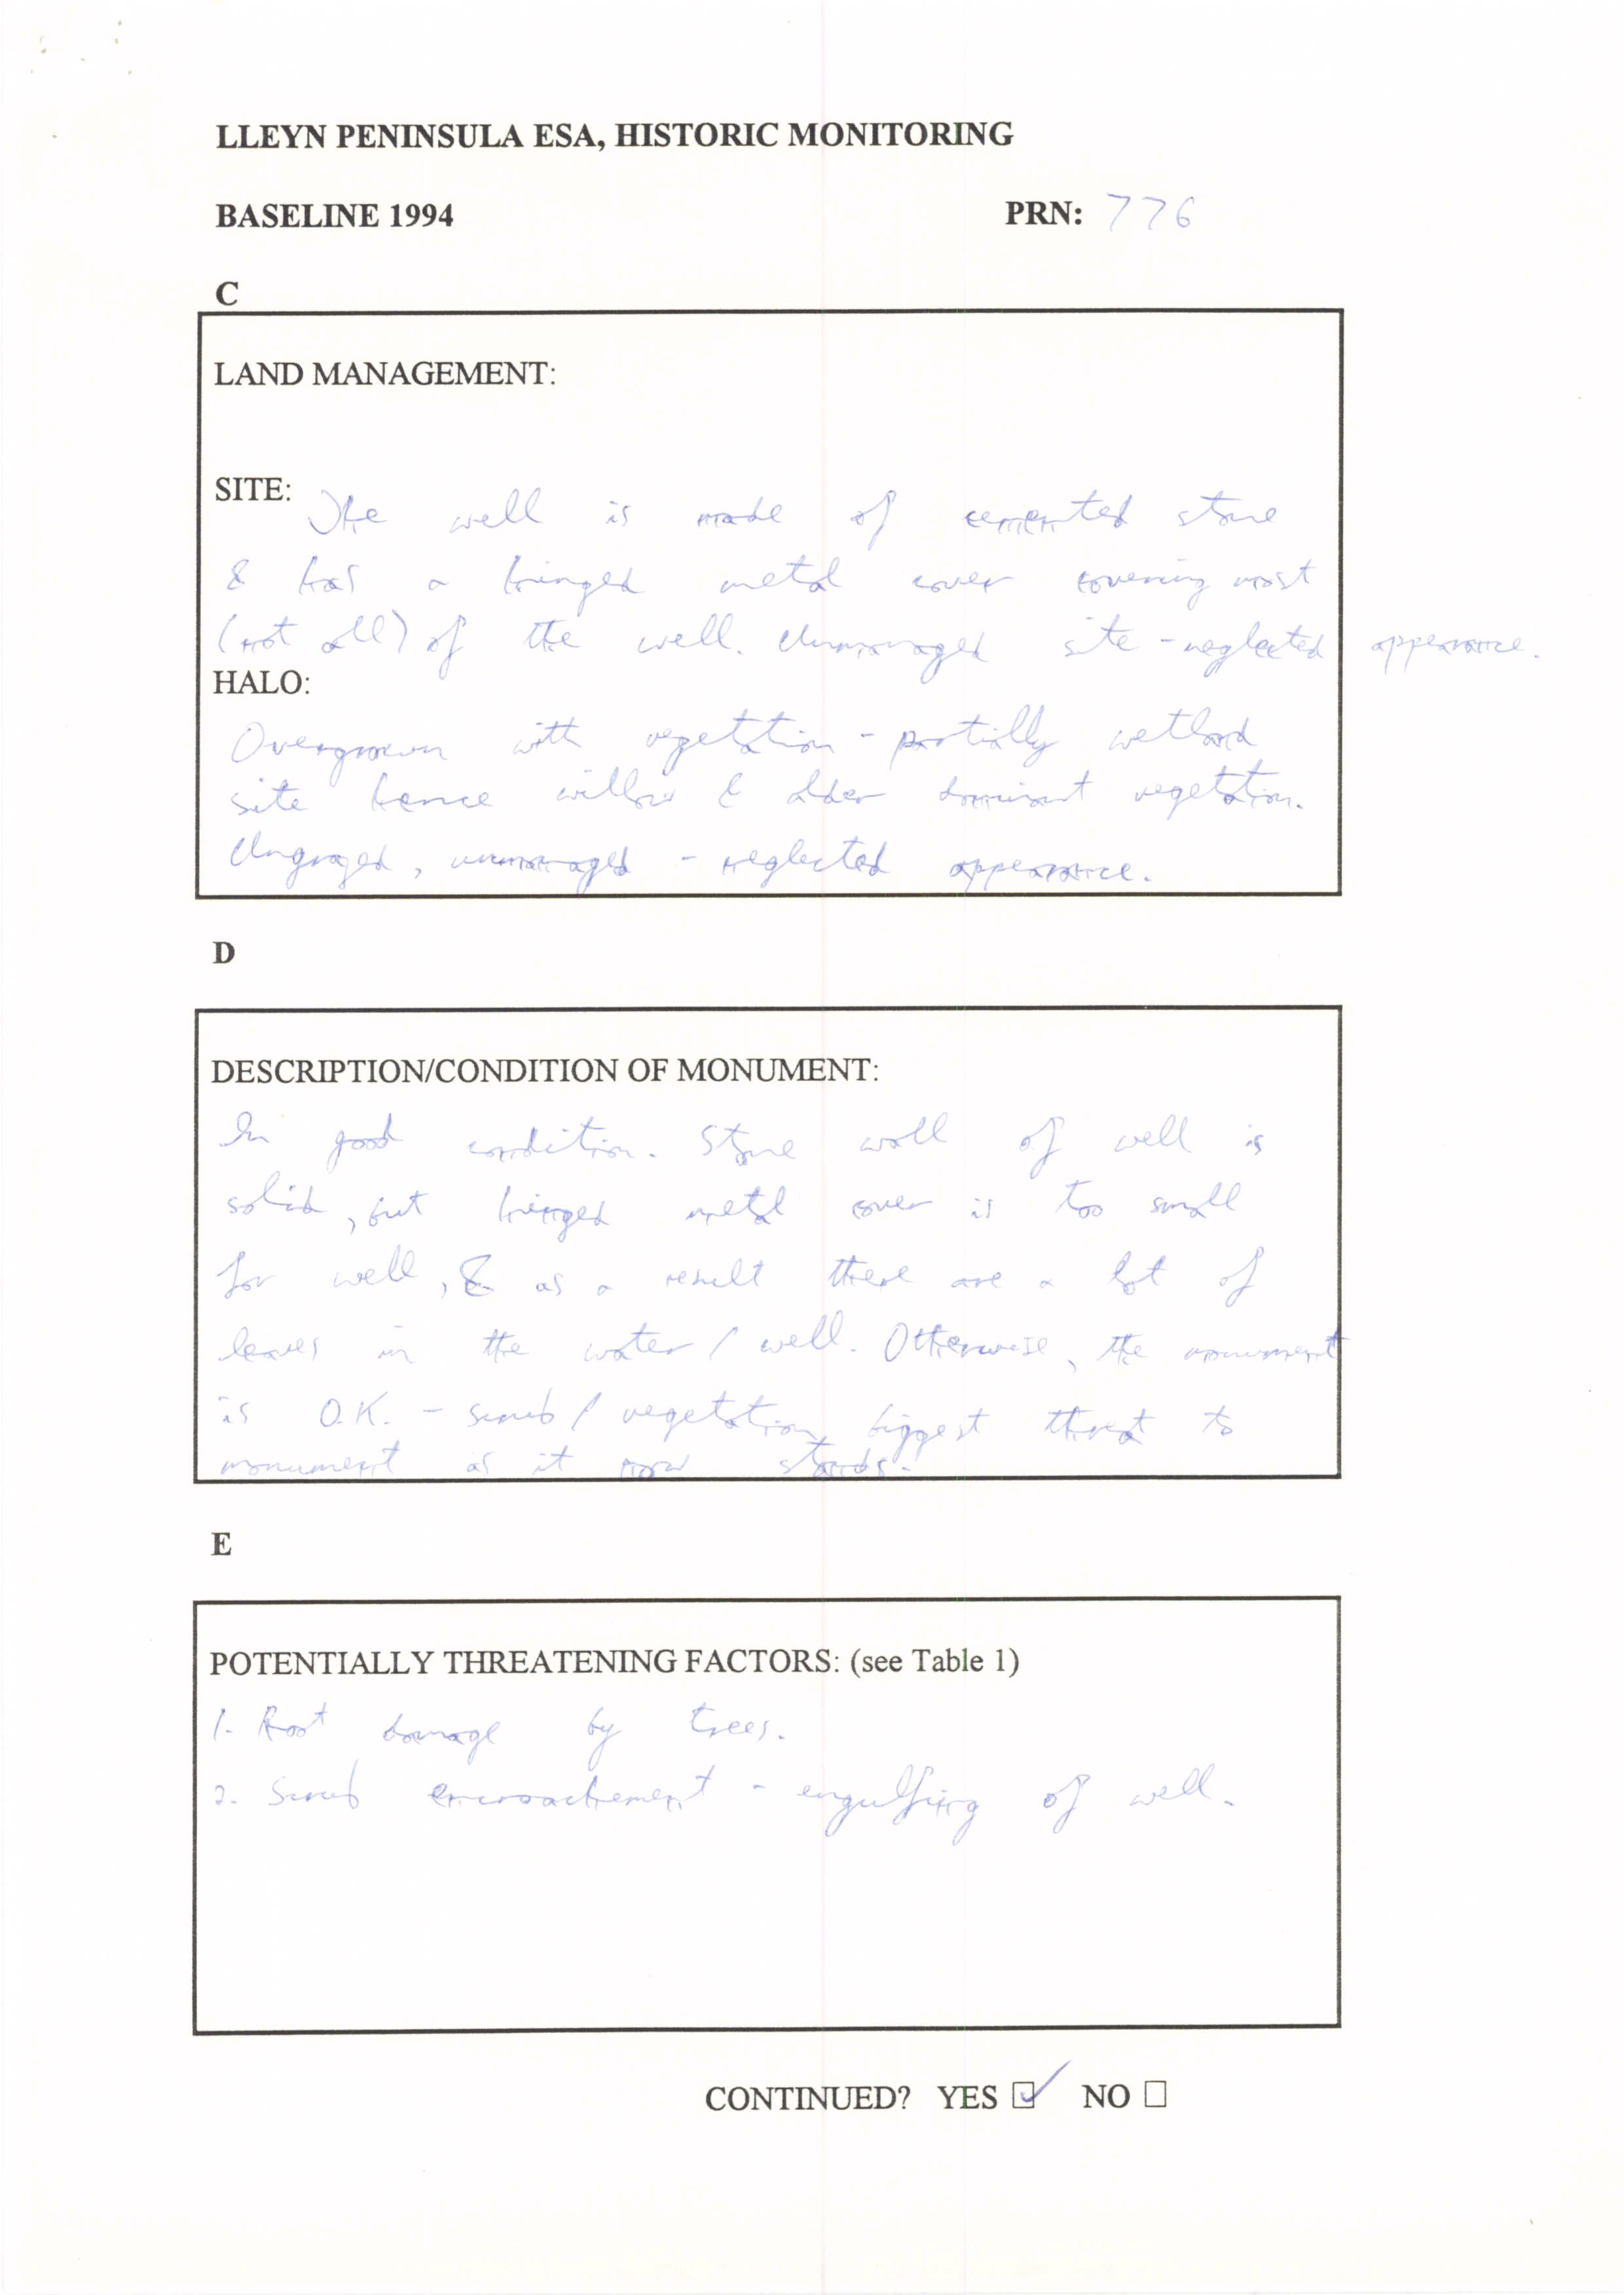 LLEYN PENINSULA ESA, HISTORIC MONITORING
BASELINE 1994 PRN: 776
C
LAND MANAGEMENT:
SITE: The well is made of cemented stone
& has a hinged metal cover covering most
(not all) of the well. Unmanaged site - neglected appearance.
HALO:
Overgrown with vegetation - partially wetland
site hence willow & alder dominant vegetation.
Ungrazed, unmanaged - neglected appearance.
D
DESCRIPTION/CONDITION OF MONUMENT:
In good condition. Stone wall of well is
solid, but hinged metal cover is too small
for well, & as a result there are a lot of
leaves in the water / well. Otherwise, the monument
is O.K. - scrub / vegetation biggest threat to
monument as it now stands.
E
POTENTIALLY THREATENING FACTORS: (see Table 1)
1. Root damage by trees.
2. Scrub encroachement - engulfing of well.
CONTINUED? YES ☑ NO ☐